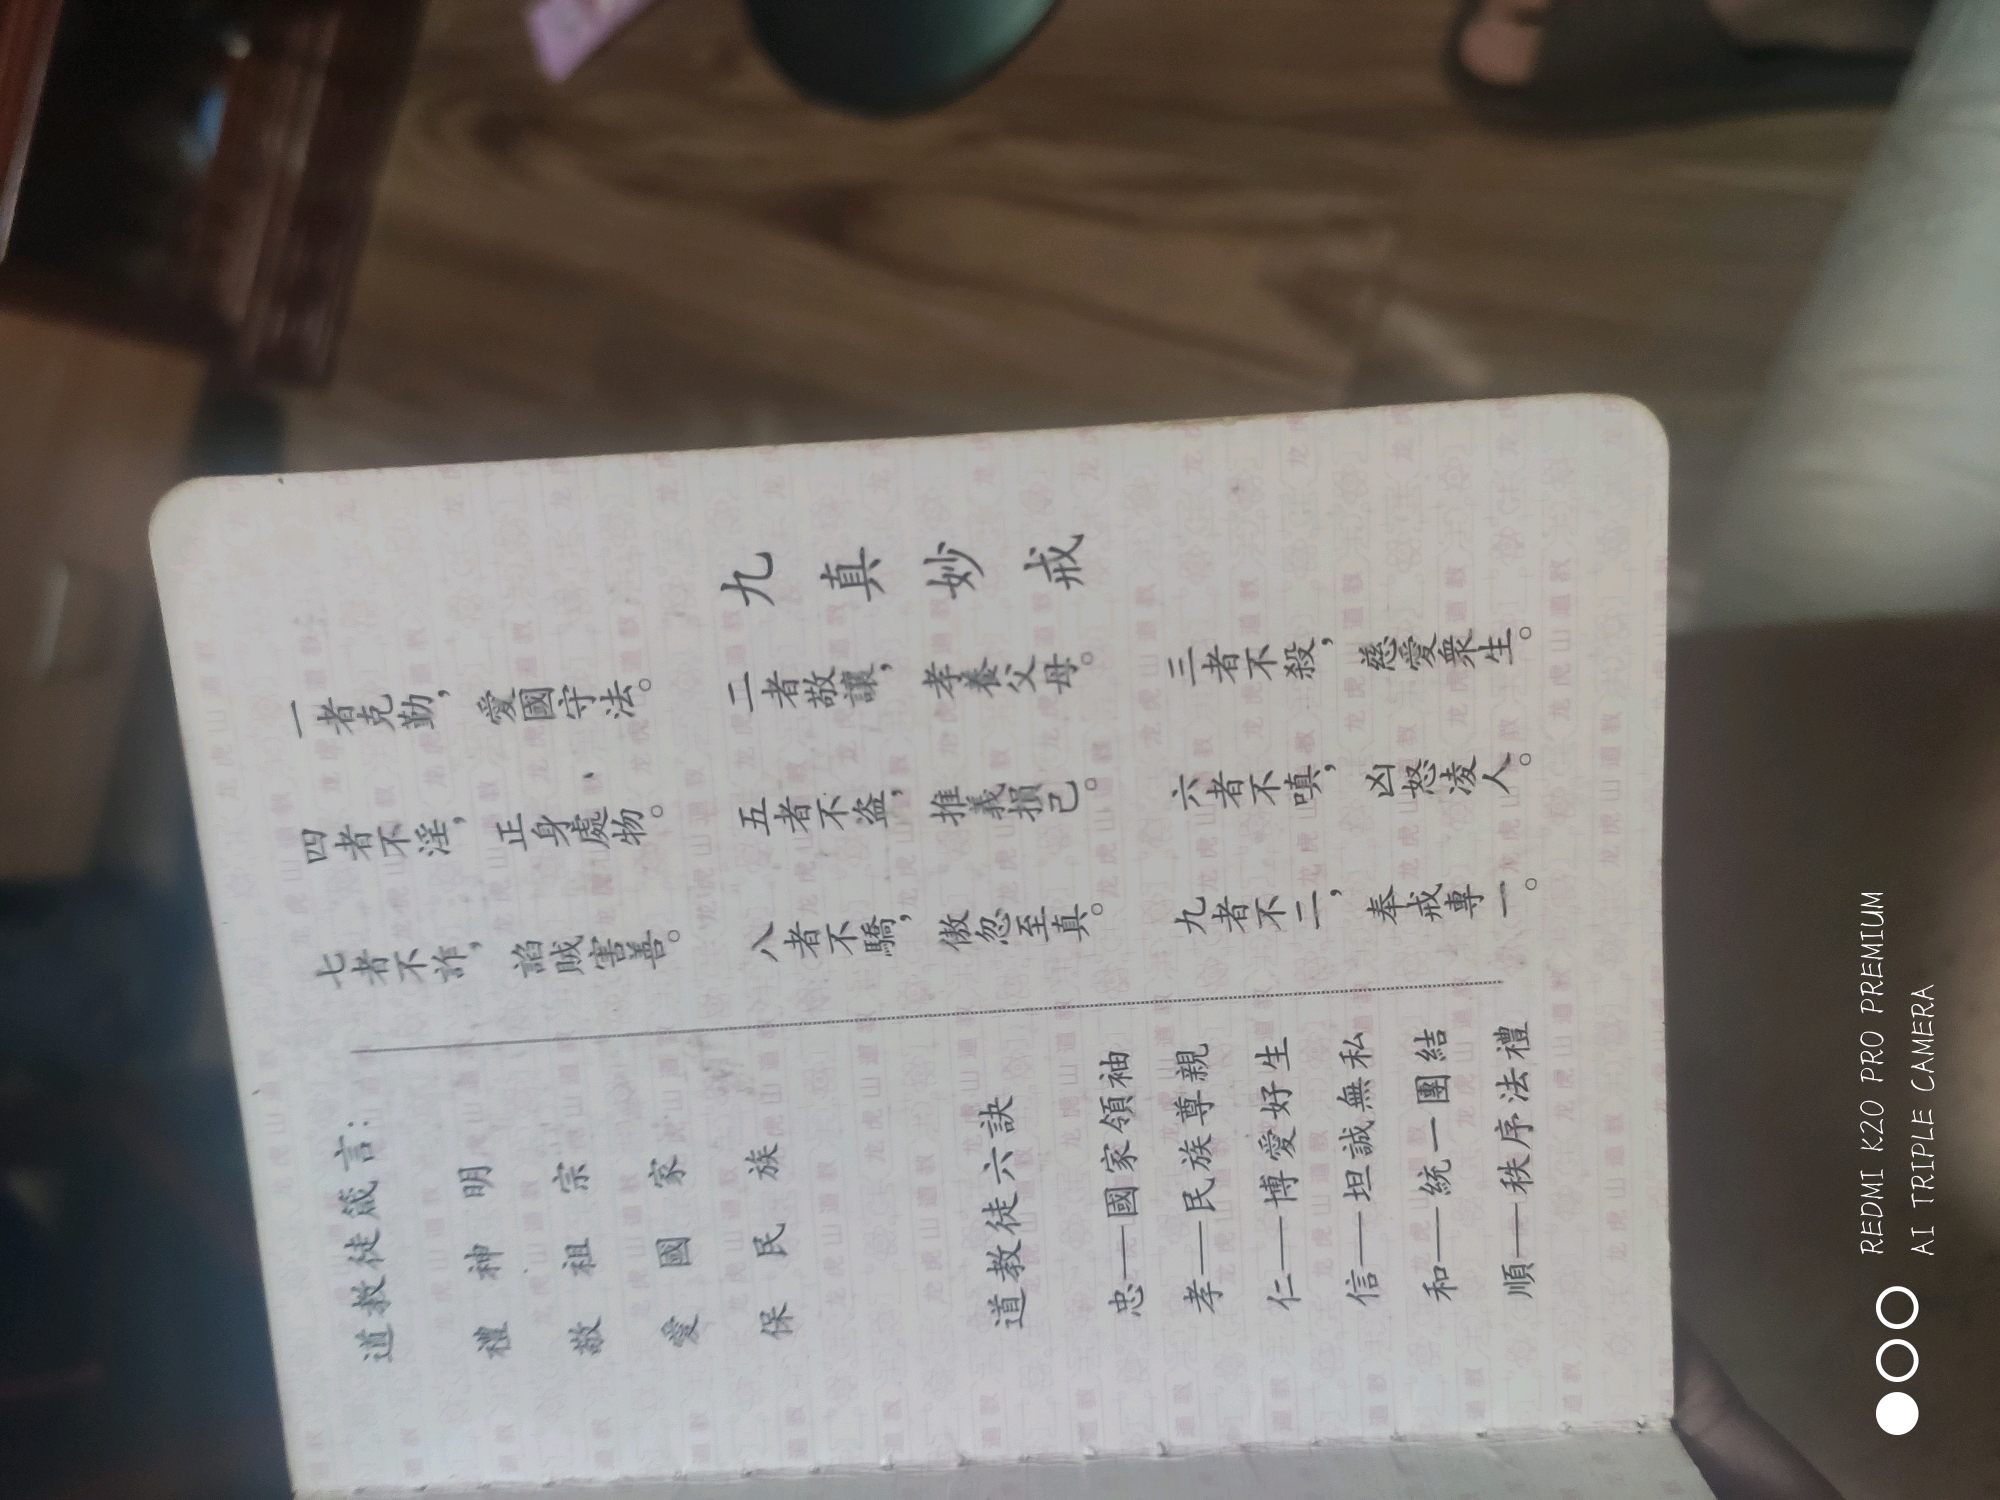 九真妙戒
一者克勤，愛國守法。
二者敬讓，孝養父母。
三者不殺，慈愛衆生。
四者不淫，正身處物。
五者不盗，推義損己。
六者不嗔，凶怒凌人。
七者不詐，諂賊害善。
八者不驕，傲忽至真。
九者不二，奉戒專一。
道教徒箴言：
禮神明
敬祖宗
愛國家
保民族
道教徒六訣
忠——國家領袖
孝——民族尊親
仁——博愛好生
信——坦誠無私
和——統一團結
順——秩序法禮
龙虎山道教
REDMI K20 PRO PREMIUM
AI TRIPLE CAMERA